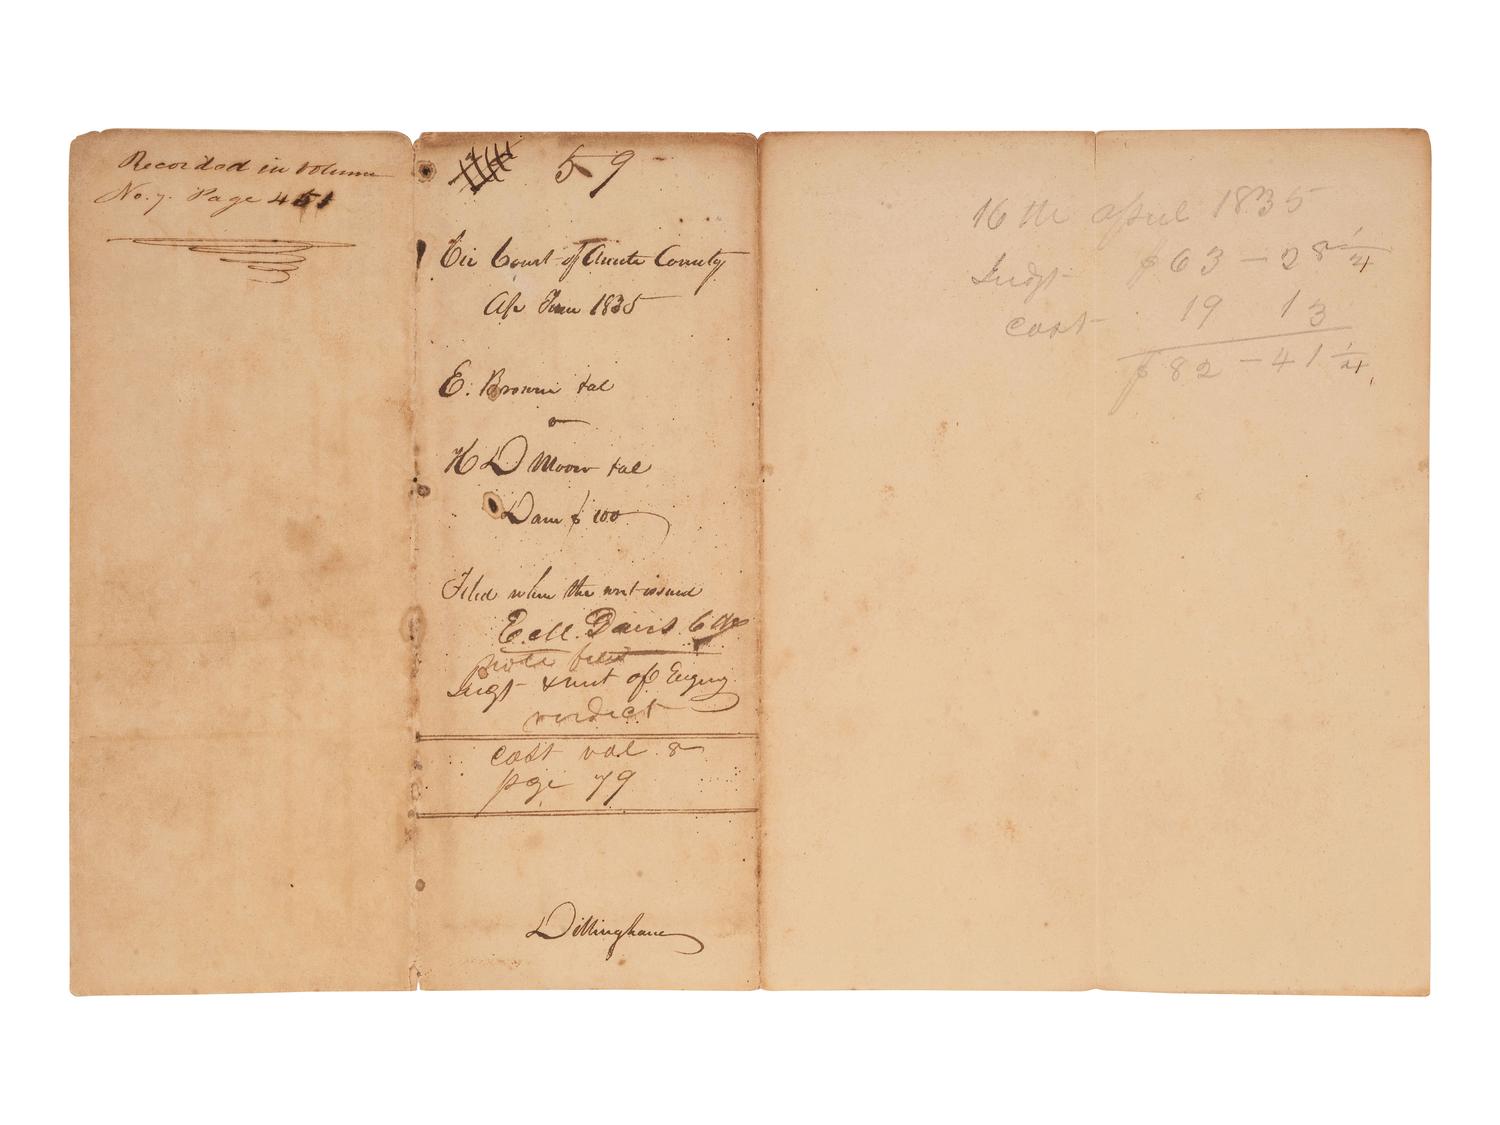 Recorded in Volume
No. 7. Page 451
59
Cir Court of Amite County
Ap Term 1835
E. Brown & al
v
H D Moore & al
Dam $ 100
Filed when the writ issued
E. M. Davis Clk
note filed
Judgt & writ of Enquiry
verdict
cost vol 8
pge 79
Dillingham
16th April 1835
Judgt $63 - 28 1/4
cost 19 13
$82 - 41 1/4